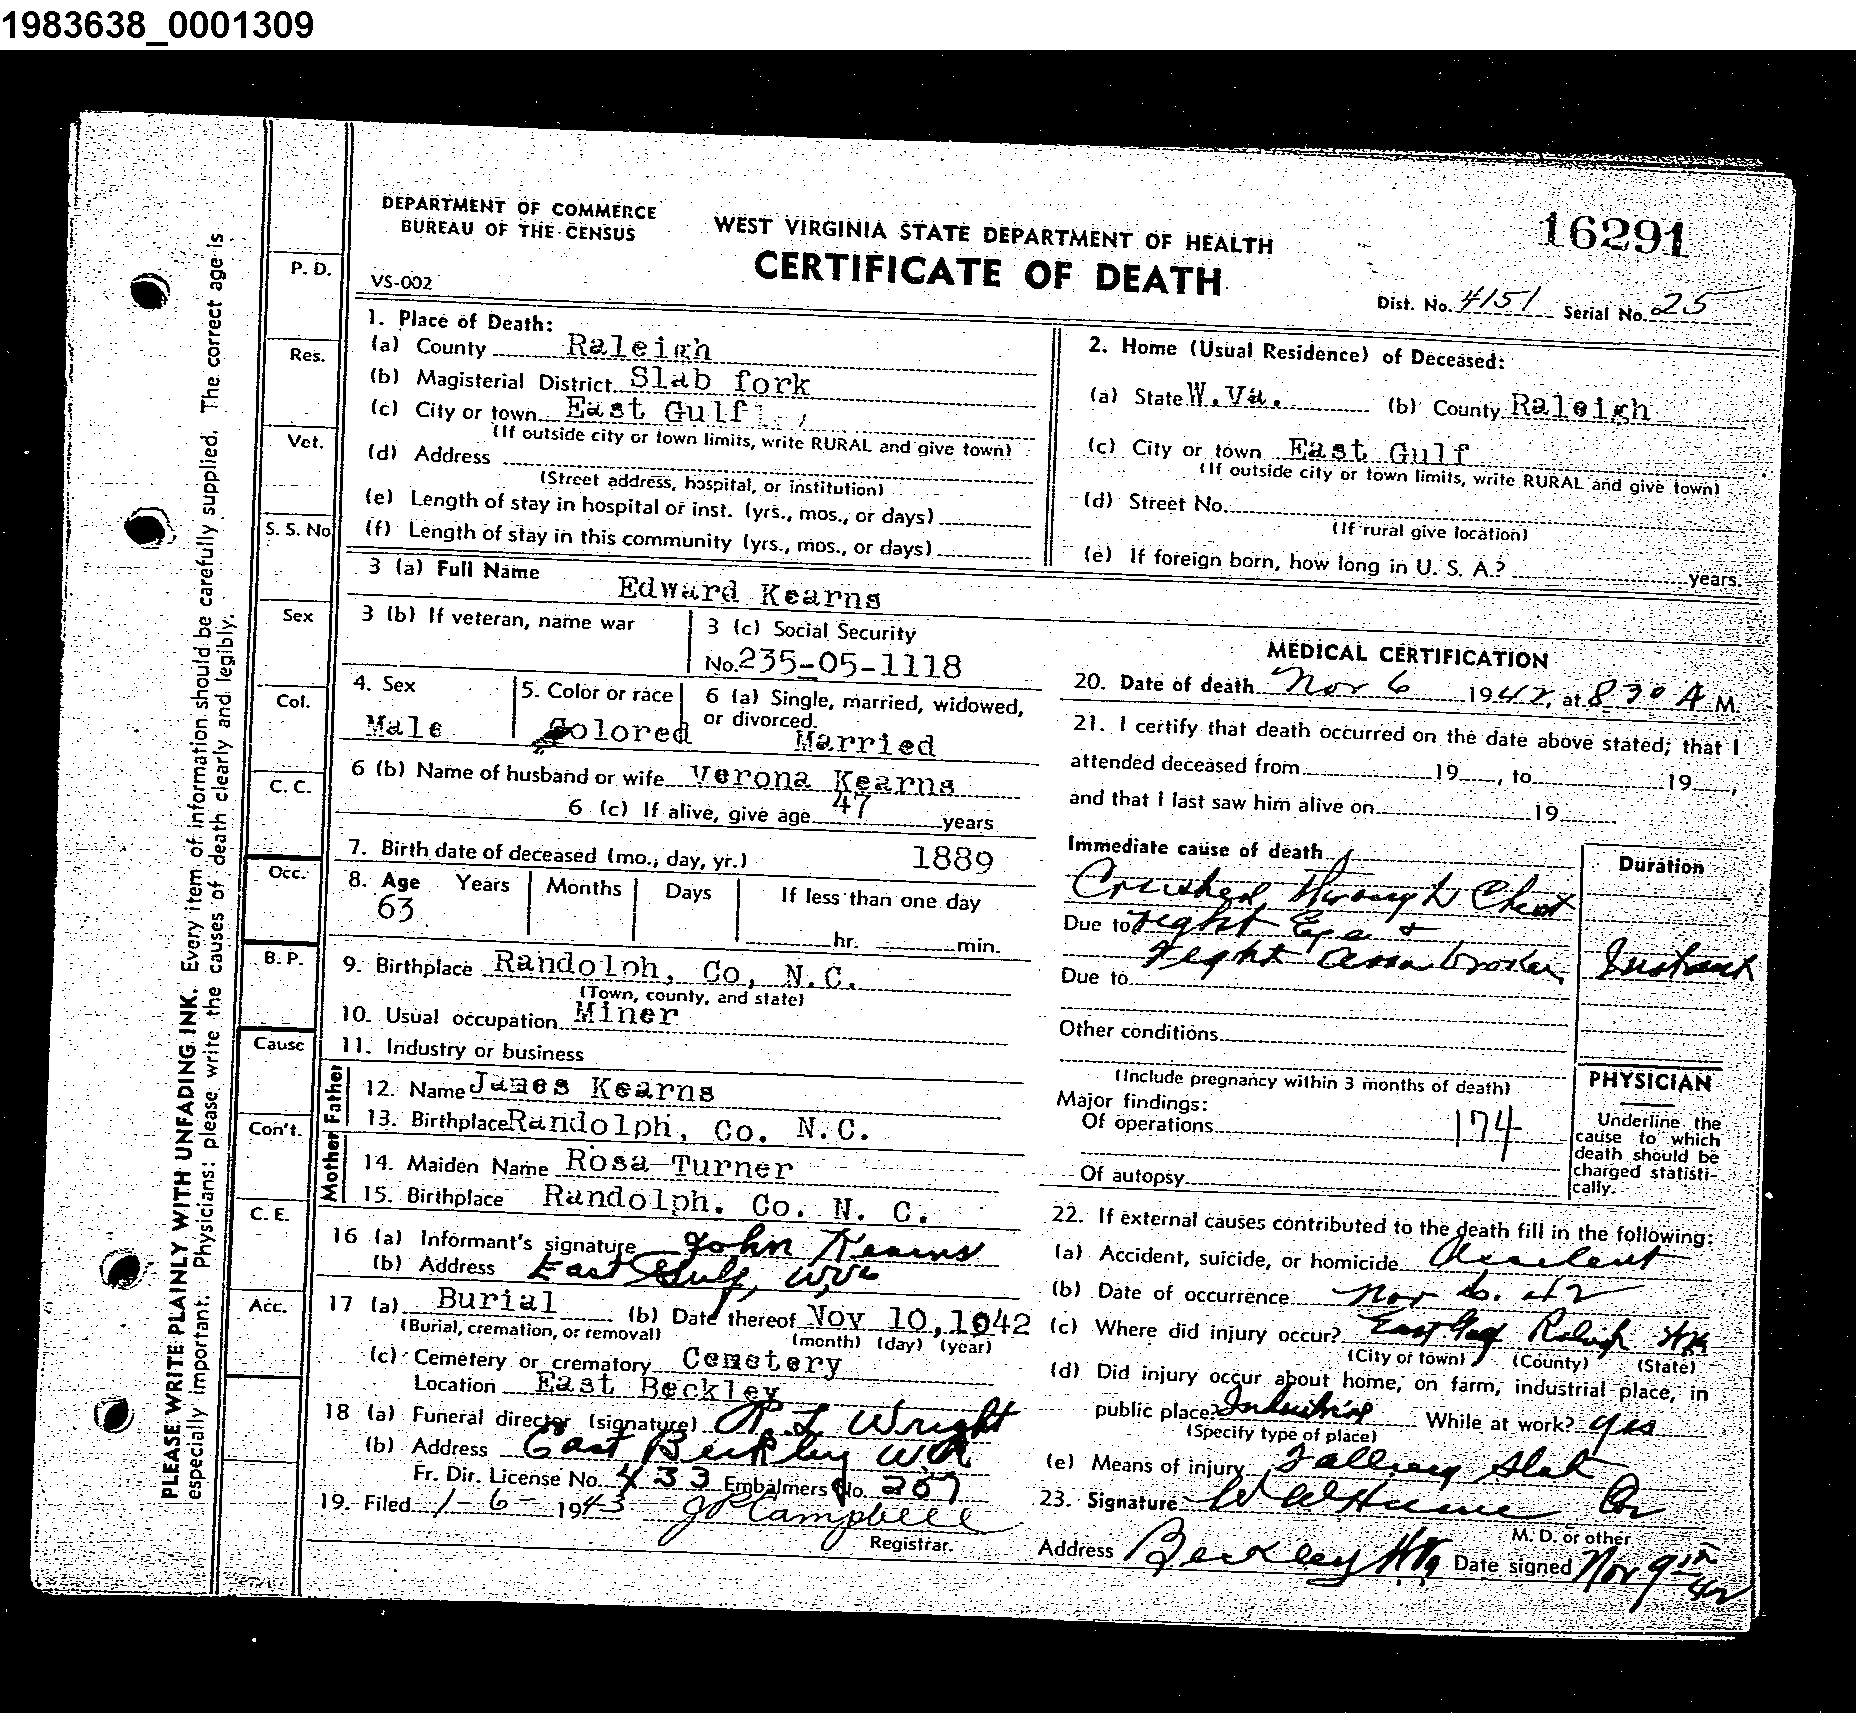 1983638_0001309
DEPARTMENT OF COMMERCE
BUREAU OF THE CENSUS
WEST VIRGINIA STATE DEPARTMENT OF HEALTH
16291
CERTIFICATE OF DEATH
VS-002
Dist. No. 4151 Serial No. 25
1. Place of Death:
(a) County Raleigh
(b) Magisterial District Slab fork
(c) City or town East Gulf
(If outside city or town limits, write RURAL and give town)
(d) Address
(Street address, hospital, or institution)
(e) Length of stay in hospital or inst. (yrs., mos., or days)
(f) Length of stay in this community (yrs., mos., or days)
2. Home (Usual Residence) of Deceased:
(a) State W.Va. (b) County Raleigh
(c) City or town East Gulf
(If outside city or town limits, write RURAL and give town)
(d) Street No.
(If rural give location)
(e) If foreign born, how long in U. S. A.? years.
3 (a) Full Name Edward Kearns
3 (b) If veteran, name war
3 (c) Social Security
No. 235-05-1118
4. Sex
Male
5. Color or race
Colored
6 (a) Single, married, widowed,
or divorced.
Married
6 (b) Name of husband or wife Verona Kearns
6 (c) If alive, give age 47 years
7. Birth date of deceased (mo., day, yr.) 1889
8. Age Years Months Days If less than one day
63
hr. min.
9. Birthplace Randolph, Co, N.C.
(Town, county, and state)
10. Usual occupation Miner
11. Industry or business
Father
12. Name James Kearns
13. Birthplace Randolph, Co. N.C.
Mother
14. Maiden Name Rosa Turner
15. Birthplace Randolph. Co. N. C.
16 (a) Informant's signature John Kearns
(b) Address East Gulf, WVa
17 (a) Burial (b) Date thereof Nov 10, 1942
(Burial, cremation, or removal) (month) (day) (year)
(c) Cemetery or crematory Cemetery
Location East Beckley
18 (a) Funeral director (signature) R L Wright
(b) Address East Beckley W Va
Fr. Dir. License No. 433 Embalmers No. 287
19. Filed 1-6- 1943 J P Campbell
Registrar.
MEDICAL CERTIFICATION
20. Date of death Nov 6 1942, at 8 30 A M.
21. I certify that death occurred on the date above stated; that I
attended deceased from 19 , to 19 ,
and that I last saw him alive on 19
Immediate cause of death
Duration
Crushed through Chest
Due to right Eye &
right arm broken Instant
Due to
Other conditions
(Include pregnancy within 3 months of death)
Major findings:
Of operations 174
Of autopsy
PHYSICIAN
Underline the
cause to which
death should be
charged statisti-
cally.
22. If external causes contributed to the death fill in the following:
(a) Accident, suicide, or homicide Accident
(b) Date of occurrence Nov 6. 42
(c) Where did injury occur? East Gulf Raleigh WVa
(City or town) (County) (State)
(d) Did injury occur about home, on farm, industrial place, in
public place? Industrial While at work? yes
(Specify type of place)
(e) Means of injury Falling slate
23. Signature W W Hume
M. D. or other
Address Beckley WVa Date signed Nov 9th 42
P. D.
Res.
Vet.
S. S. No
Sex
Col.
C. C.
Occ.
B. P.
Cause
Con't.
C. E.
Acc.
PLEASE WRITE PLAINLY WITH UNFADING INK. Every item of information should be carefully supplied. The correct age is
especially important. Physicians: please write the causes of death clearly and legibly.